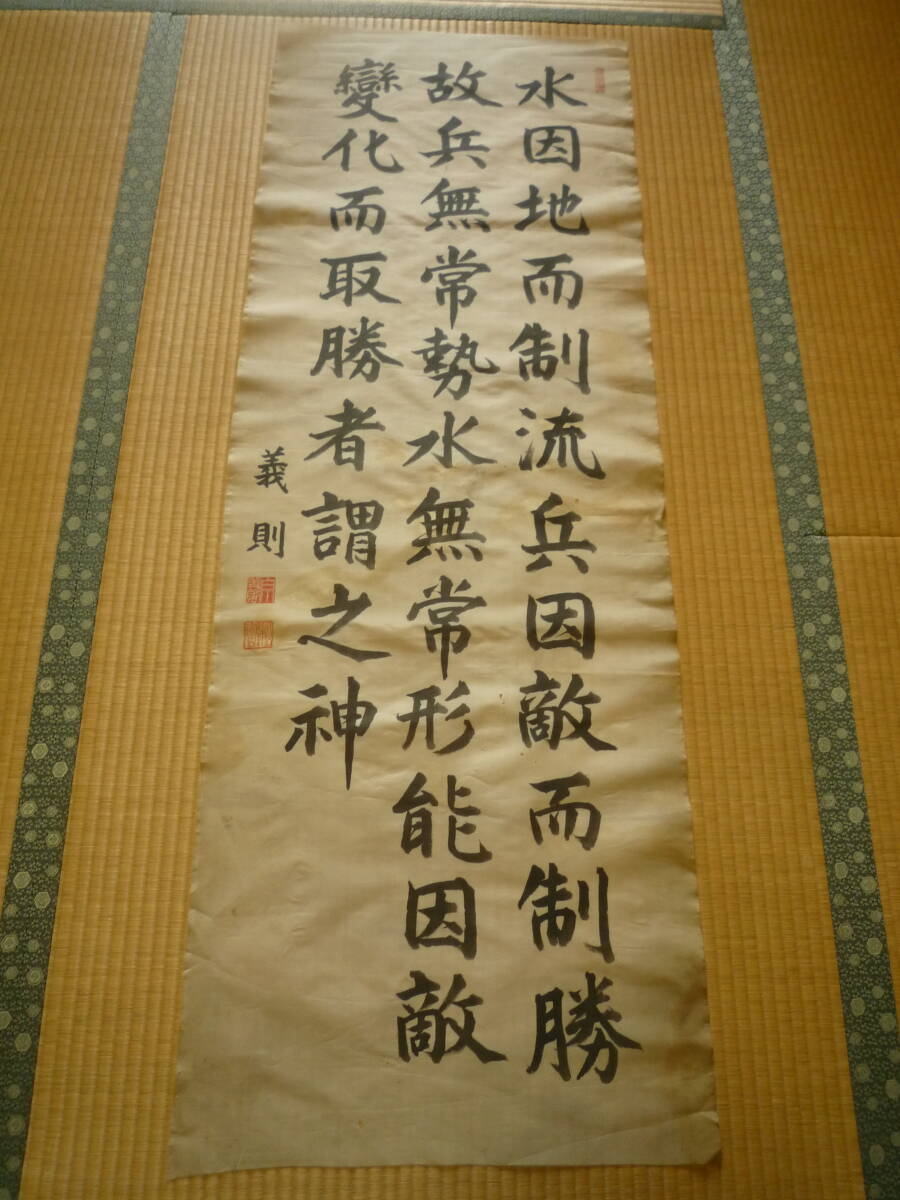 水因地而制流兵因敵而制勝
故兵無常勢水無常形能因敵
變化而取勝者謂之神
義則